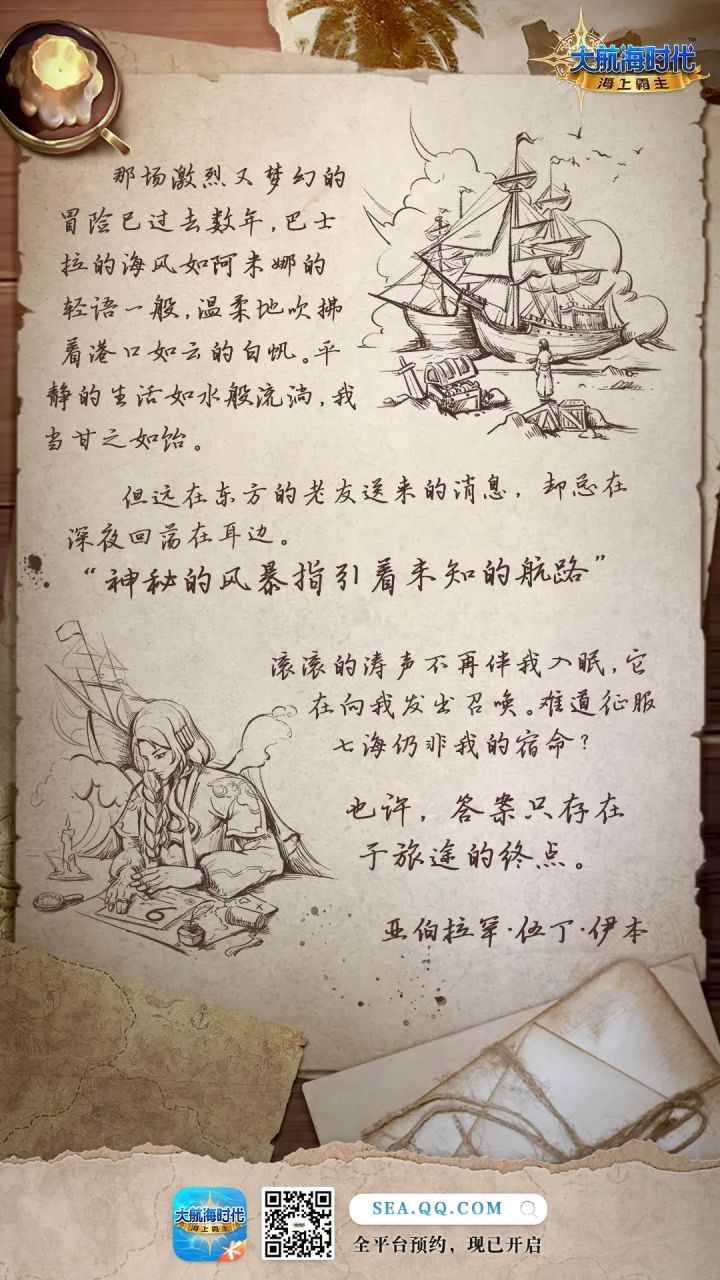 大航海时代
TM
海上霸主
那场激烈又梦幻的
冒险已过去数年,巴士
拉的海风如阿米娜的
轻语一般,温柔地吹拂
着港口如云的白帆。平
静的生活如水般流淌,我
当甘之如饴。
但远在东方的老友送来的消息，却总在
深夜回荡在耳边。
“神秘的风暴指引着未知的航路”
滚滚的涛声不再伴我入眠,它
在向我发出召唤。难道征服
七海仍非我的宿命？
也许，答案只存在
于旅途的终点。
亚伯拉罕·伍丁·伊本
大航海时代
海上霸主
SEA.QQ.COM
全平台预约，现已开启